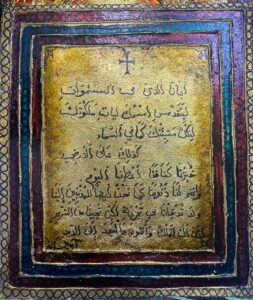 أبانا الذي في السموات
ليتقدس اسمك ليات ملكوتك
لتكن مشيئتك كما في السماء
كذلك على الأرض
خبزنا كفافنا أعطنا اليوم
واغفر لنا ذنوبنا كما نغفر نحن للمذنبين إلينا
ولا تدخلنا في تجربة لكن نجنا من الشرير
لأن لك الملك والقوة والمجد إلى الأبد